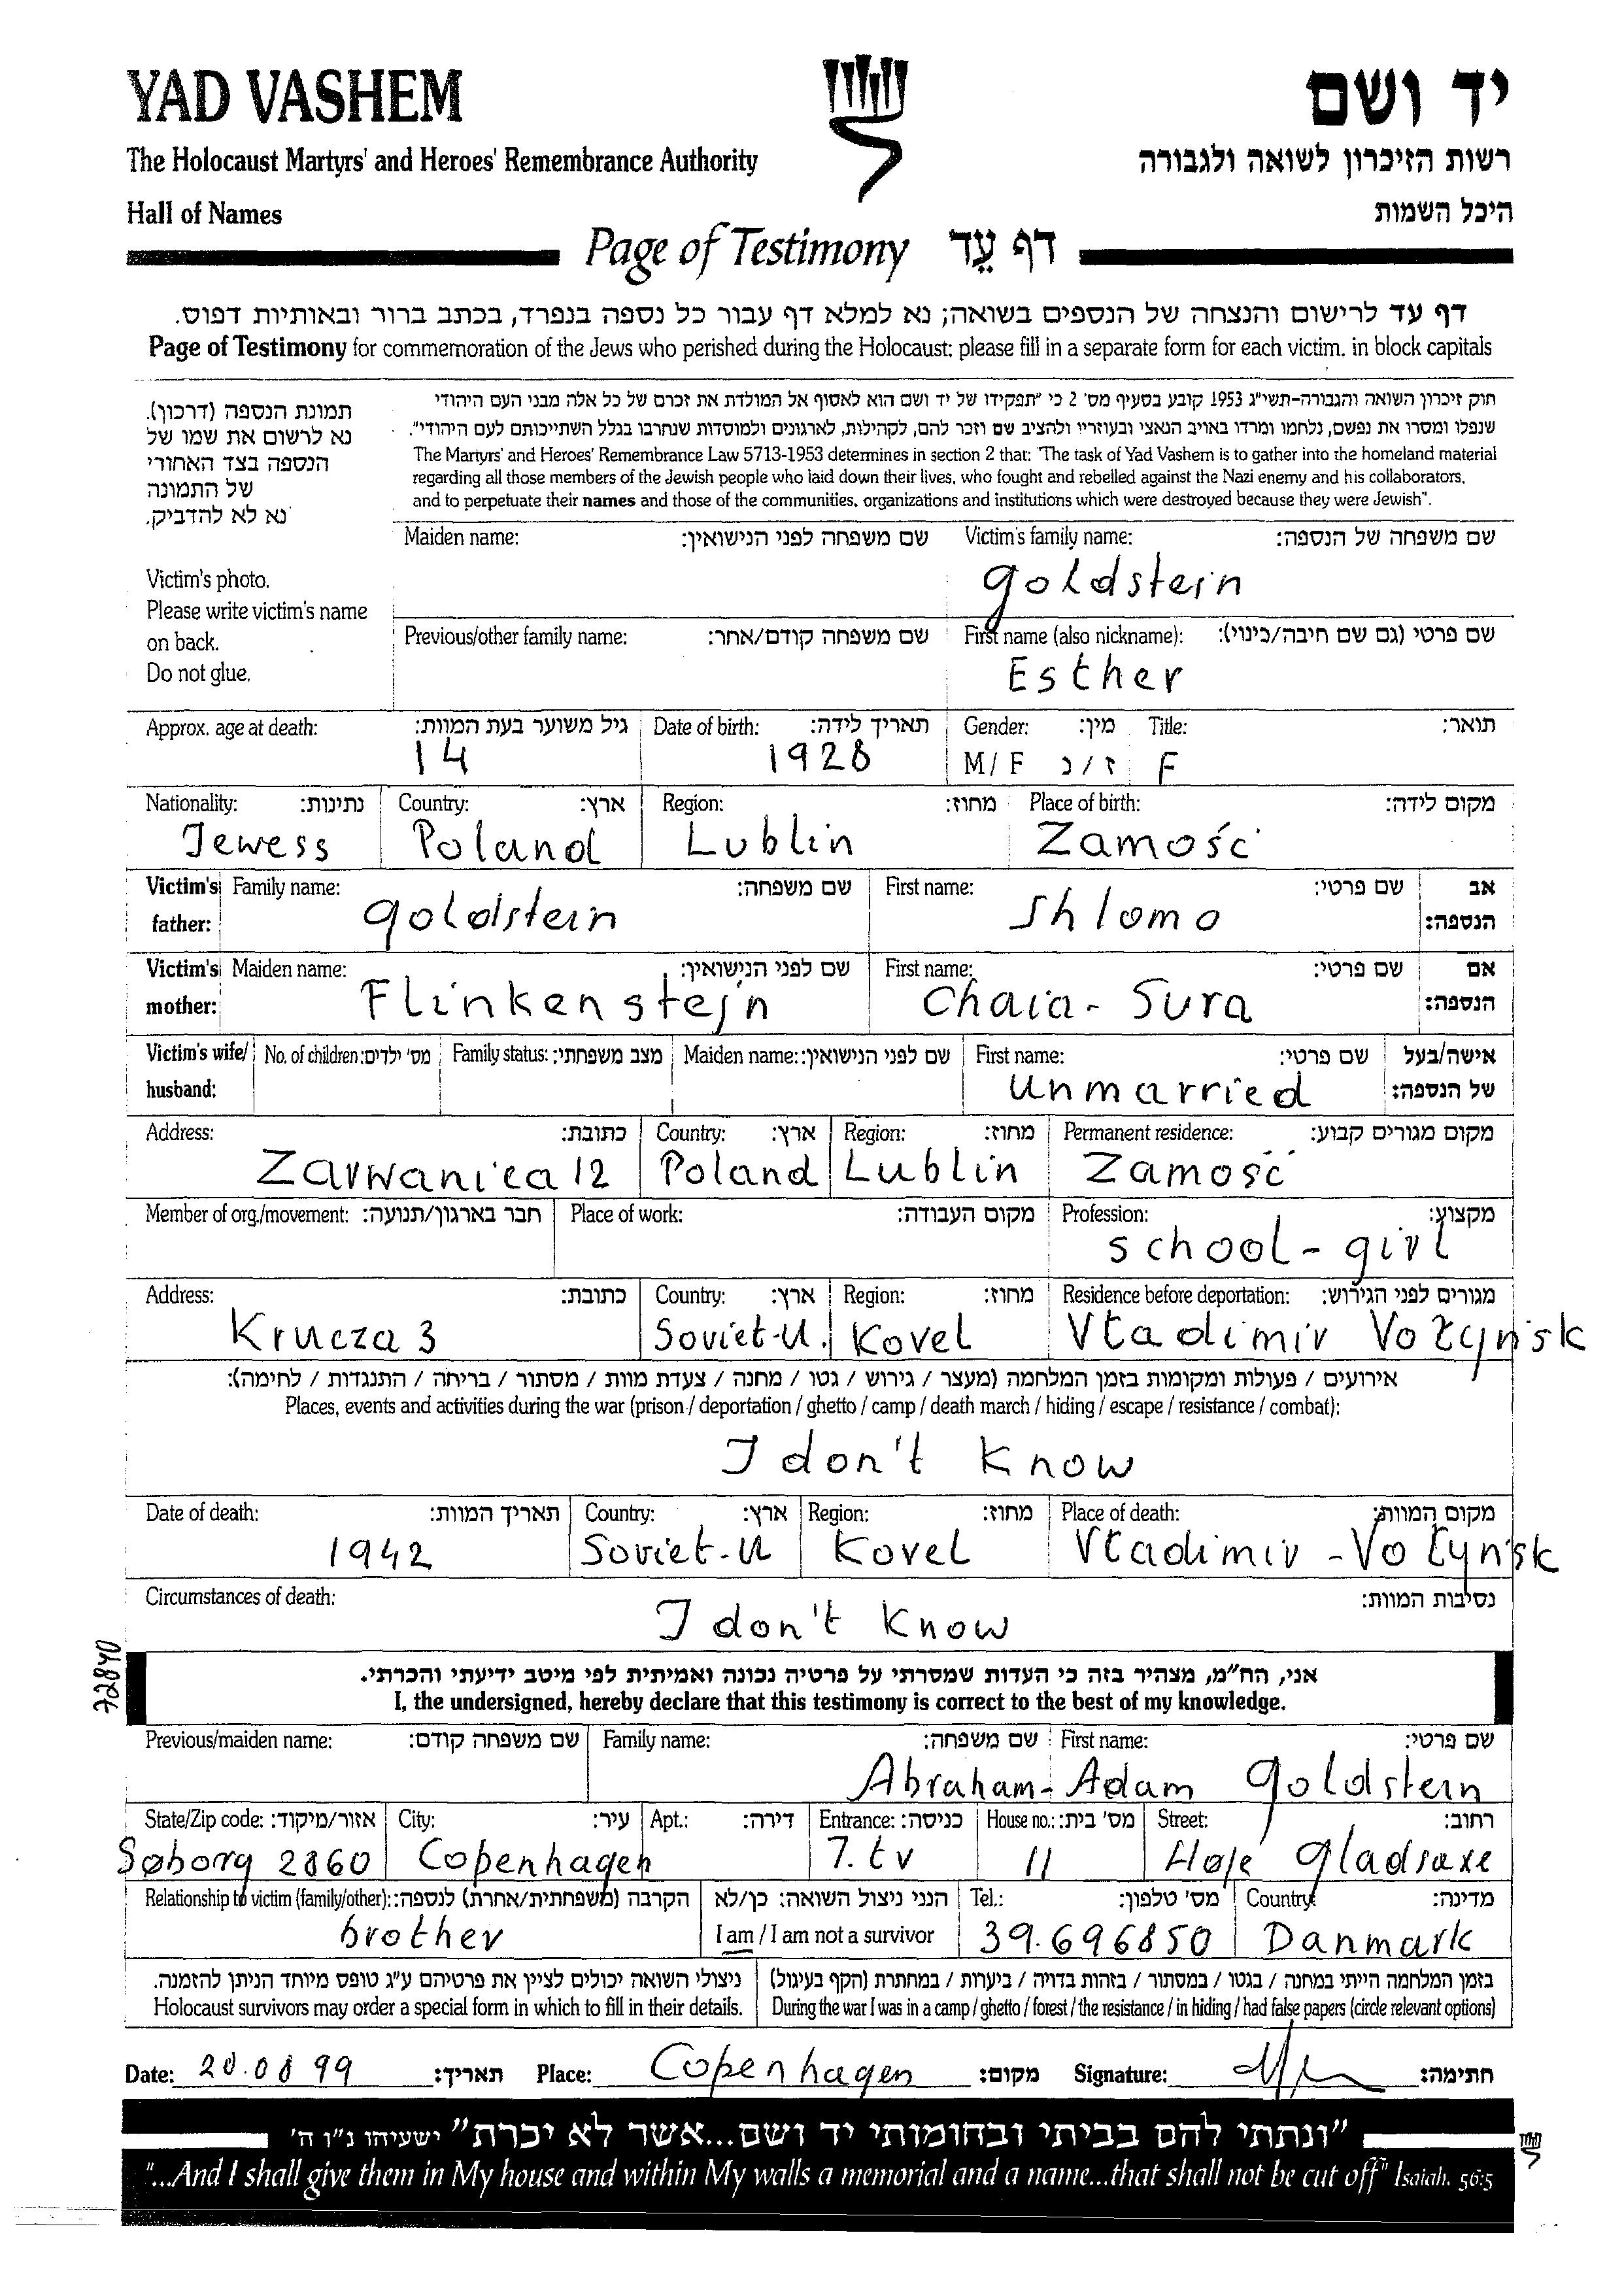 YAD VASHEM
יד ושם
The Holocaust Martyrs' and Heroes' Remembrance Authority
רשות הזיכרון לשואה ולגבורה
Hall of Names
היכל השמות
Page of Testimony דף עֵד
דף עד לרישום והנצחה של הנספים בשואה; נא למלא דף עבור כל נספה בנפרד, בכתב ברור ובאותיות דפוס.
Page of Testimony for commemoration of the Jews who perished during the Holocaust; please fill in a separate form for each victim, in block capitals
תמונת הנספה (דרכון).
נא לרשום את שמו של
הנספה בצד האחורי
של התמונה
נא לא להדביק.
Victim's photo.
Please write victim's name
on back.
Do not glue.
חוק זיכרון השואה והגבורה-תשי"ג 1953 קובע בסעיף מס' 2 כי "תפקידו של יד ושם הוא לאסוף אל המולדת את זכרם של כל אלה מבני העם היהודי
שנפלו ומסרו את נפשם, נלחמו ומרדו באויב הנאצי ובעוזריו ולהציב שם וזכר להם, לקהילות, לארגונים ולמוסדות שנחרבו בגלל השתייכותם לעם היהודי".
The Martyrs' and Heroes' Remembrance Law 5713-1953 determines in section 2 that: "The task of Yad Vashem is to gather into the homeland material
regarding all those members of the Jewish people who laid down their lives, who fought and rebelled against the Nazi enemy and his collaborators,
and to perpetuate their names and those of the communities, organizations and institutions which were destroyed because they were Jewish".
Maiden name: שם משפחה לפני הנישואין: Victim's family name: שם משפחה של הנספה:
goldstein
Previous/other family name: שם משפחה קודם/אחר: First name (also nickname): שם פרטי (גם שם חיבה/כינוי):
Esther
Approx. age at death: גיל משוער בעת המוות: Date of birth: תאריך לידה: Gender: מין: Title: תואר:
14 1928 M/F ז/נ F
Nationality: נתינות: Country: ארץ: Region: מחוז: Place of birth: מקום לידה:
Jewess Poland Lublin Zamość
Victim's father: Family name: שם משפחה: First name: שם פרטי: אב הנספה:
goldstein Shlomo
Victim's mother: Maiden name: שם לפני הנישואין: First name: שם פרטי: אם הנספה:
Flinkenstejn Chaia-Sura
Victim's wife/ husband: No. of children: מס' ילדים: Family status: מצב משפחתי: Maiden name: שם לפני הנישואין: First name: שם פרטי: אישה/בעל של הנספה:
unmarried
Address: כתובת: Country: ארץ: Region: מחוז: Permanent residence: מקום מגורים קבוע:
Zarwanica 12 Poland Lublin Zamość
Member of org./movement: חבר בארגון/תנועה: Place of work: מקום העבודה: Profession: מקצוע:
school-girl
Address: כתובת: Country: ארץ: Region: מחוז: Residence before deportation: מגורים לפני הגירוש:
Krucza 3 Soviet-U. Kovel Vładimir Vołyńsk
אירועים / פעולות ומקומות בזמן המלחמה (מעצר / גירוש / גטו / מחנה / צעדת מוות / מסתור / בריחה / התנגדות / לחימה):
Places, events and activities during the war (prison / deportation / ghetto / camp / death march / hiding / escape / resistance / combat):
I don't know
Date of death: תאריך המוות: Country: ארץ: Region: מחוז: Place of death: מקום המוות:
1942 Soviet-U Kovel Vładimir-Vołyńsk
Circumstances of death: נסיבות המוות:
I don't know
72840
אני, הח"מ, מצהיר בזה כי העדות שמסרתי על פרטיה נכונה ואמיתית לפי מיטב ידיעתי והכרתי.
I, the undersigned, hereby declare that this testimony is correct to the best of my knowledge.
Previous/maiden name: שם משפחה קודם: Family name: שם משפחה: First name: שם פרטי:
Abraham-Adam goldstein
State/Zip code: אזור/מיקוד: City: עיר: Apt.: דירה: Entrance: כניסה: House no.: מס' בית: Street: רחוב:
Søborg 2860 Copenhagen 7. tv 11 Høje gladsaxe
Relationship to victim (family/other): הקרבה (משפחתית/אחרת) לנספה: הנני ניצול השואה: כן/לא Tel.: מס' טלפון: Country: מדינה:
brother I am / I am not a survivor 39.696850 Danmark
ניצולי השואה יכולים לציין את פרטיהם ע"ג טופס מיוחד הניתן להזמנה. בזמן המלחמה הייתי במחנה / בגטו / במסתור / בזהות בדויה / ביערות / במחתרת (הקף בעיגול)
Holocaust survivors may order a special form in which to fill in their details. During the war I was in a camp / ghetto / forest / the resistance / in hiding / had false papers (circle relevant options)
Date: 20.08 99 תאריך: Place: Copenhagen מקום: Signature: חתימה:
"ונתתי להם בביתי ובחומותי יד ושם...אשר לא יכרת" ישעיהו נ"ו ה'
"...And I shall give them in My house and within My walls a memorial and a name...that shall not be cut off" Isaiah, 56:5